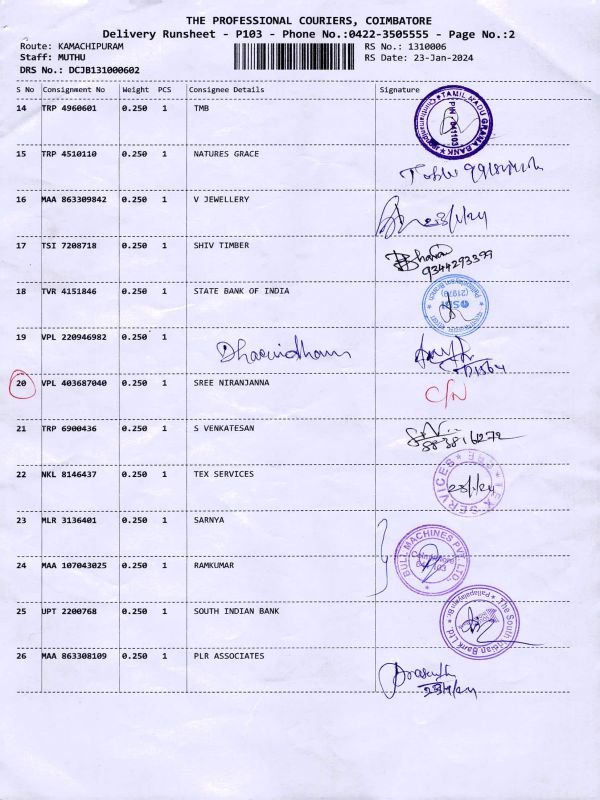 THE PROFESSIONAL COURIERS, COIMBATORE
Delivery Runsheet - P103 - Phone No.:0422-3505555 - Page No.:2
Route: KAMACHIPURAM
RS No.: 1310006
Staff: MUTHU
RS Date: 23-Jan-2024
DRS No.: DCJB131000602
S No Consignment No Weight PCS Consignee Details Signature
14 TRP 4960601 0.250 1 TMB
TAMIL NADU GRAMA BANK
15 TRP 4510110 0.250 1 NATURES GRACE
16 MAA 863309842 0.250 1 V JEWELLERY
23/1/24
17 TSI 7208718 0.250 1 SHIV TIMBER
Bharan
9344293399
18 TVR 4151846 0.250 1 STATE BANK OF INDIA
SBI
19 VPL 220946982 0.250 1
20 VPL 403687040 0.250 1 SREE NIRANJANNA
C/N
21 TRP 6900436 0.250 1 S VENKATESAN
8838161272
22 NKL 8146437 0.250 1 TEX SERVICES
TEX SERVICES
23/1/24
23 MLR 3136401 0.250 1 SARNYA
BULL MACHINES PVT LTD
24 MAA 107043025 0.250 1 RAMKUMAR
25 UPT 2200768 0.250 1 SOUTH INDIAN BANK
The South Indian Bank Ltd
26 MAA 863308109 0.250 1 PLR ASSOCIATES
23/1/24